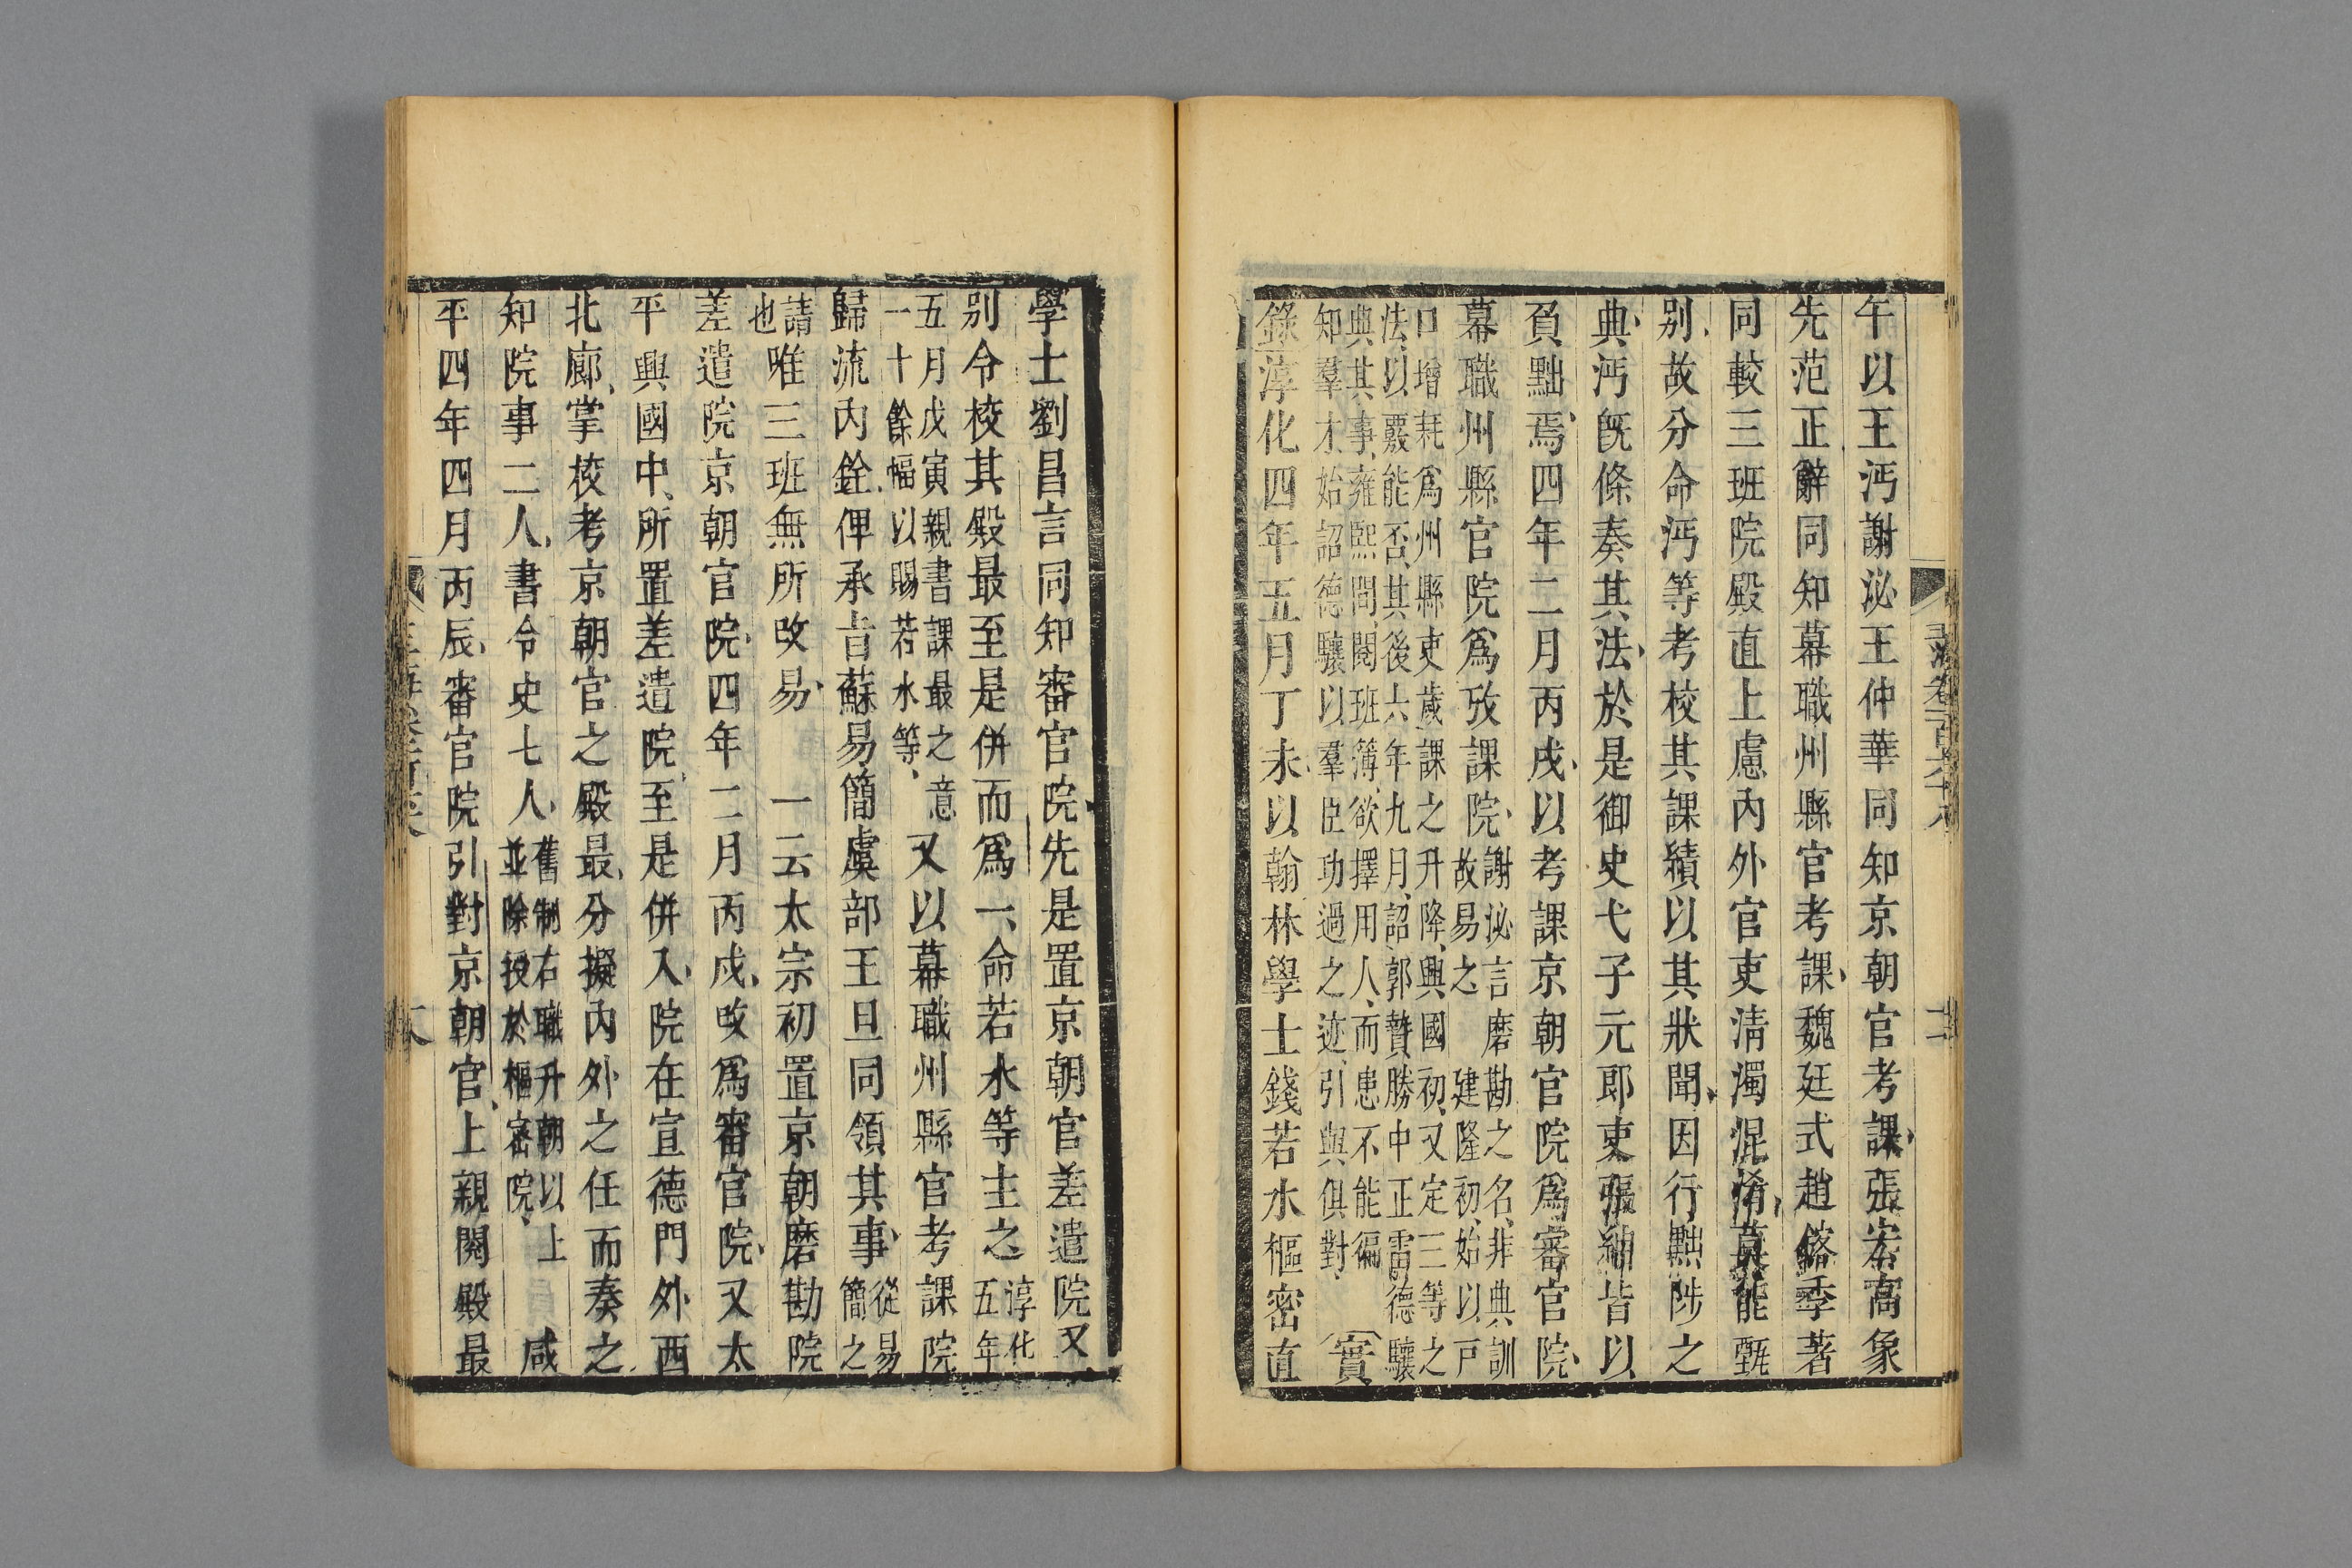 午以王沔謝泌王仲華同知京朝官考課張宏高象
先范正辭同知幕職州縣官考課魏廷式趙鎔季著
同較三班院殿直上慮內外官吏清濁混淆莫能甄
别故分命沔等考校其課績以其狀聞因行黜陟之
典沔旣條奏其法於是御史弋子元郎吏張紳皆以
負黜焉四年二月丙戌以考課京朝官院爲審官院
幕職州縣官院爲攷課院謝泌言磨勘之名非典訓
故易之 建隆初始以戸
口增耗爲州縣吏歲課之升降興國初又定三等之
法以覈能否其後六年九月詔郭贄勝中正雷德驤
典其事雍熙間閱班簿欲擇用人而患不能徧
知羣才始詔德驤以羣臣功過之迹引與俱對 實
錄淳化四年五月丁未以翰林學士錢若水樞密直
學士劉昌言同知審官院先是置京朝官差遣院又
别令校其殿最至是併而爲一命若水等主之淳化
五年
五月戊寅親書課最之意
一十餘幅以賜若水等又以幕職州縣官考課院
歸流內銓俾承旨蘇易簡虞部王旦同領其事從易
簡之
請
也唯三班無所改易 一云太宗初置京朝磨勘院
差遣院京朝官院四年二月丙戌改爲審官院又太
平興國中所置差遣院至是併入院在宣德門外西
北廊掌校考京朝官之殿最分擬內外之任而奏之
知院事二人書令史七人舊制右職升朝以上
並除授於樞密院 咸
平四年四月丙辰審官院引對京朝官上親閱殿最